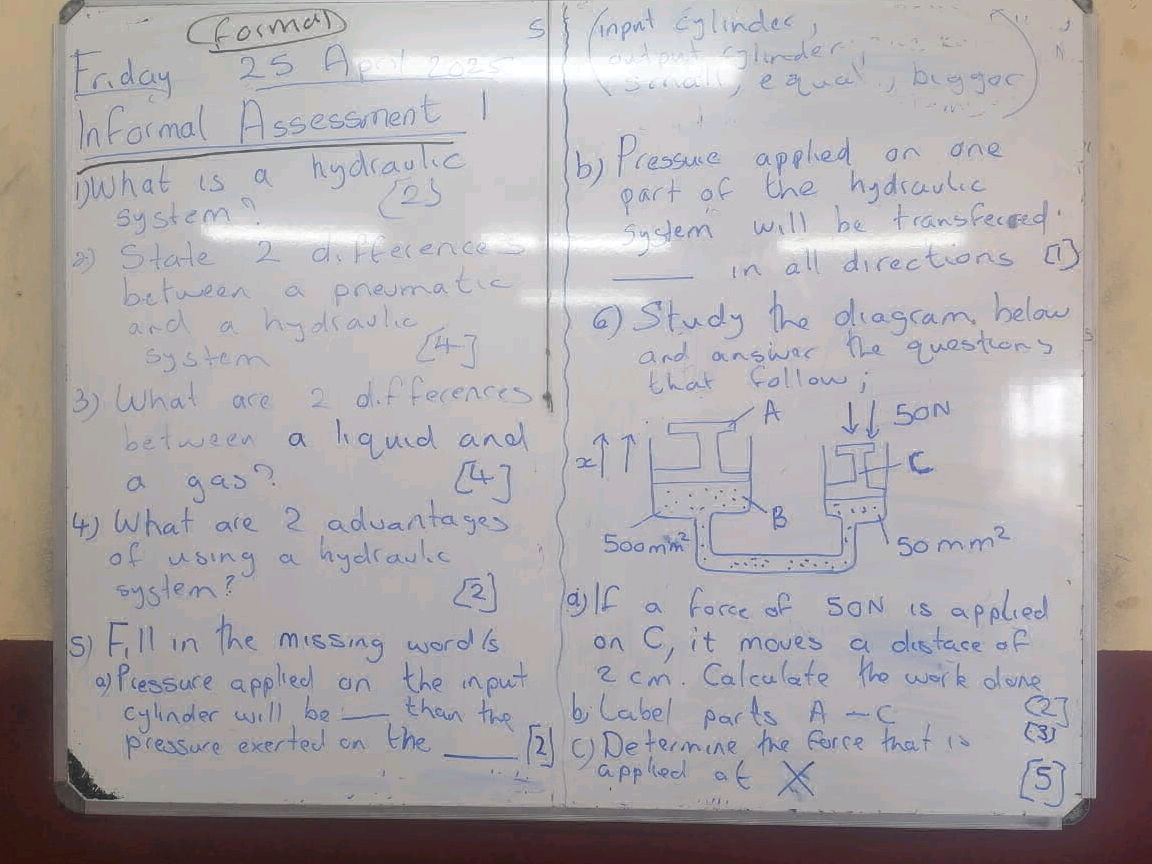 (formal)
Friday 25 April 2025
Informal Assessment 1
1) What is a hydraulic
system? [2]
2) State 2 differences
between a pneumatic
and a hydraulic
system [4]
3) What are 2 differences
between a liquid and
a gas? [4]
4) What are 2 advantages
of using a hydraulic
system? [2]
5) Fill in the missing word/s
a) Pressure applied on the input
cylinder will be ___ than the
pressure exerted on the ____ [2]
5 (input cylinder,
output cylinder,
small, equal, bigger)
b) Pressure applied on one
part of the hydraulic
system will be transferred
____ in all directions [1]
6) Study the diagram below
and answer the questions
that follow;
A
50N
x
C
B
500mm²
50mm²
a) If a force of 50N is applied
on C, it moves a distace of
2 cm. Calculate the work done
[2]
b) Label parts A – C
[3]
c) Determine the force that is
applied at X
[5]